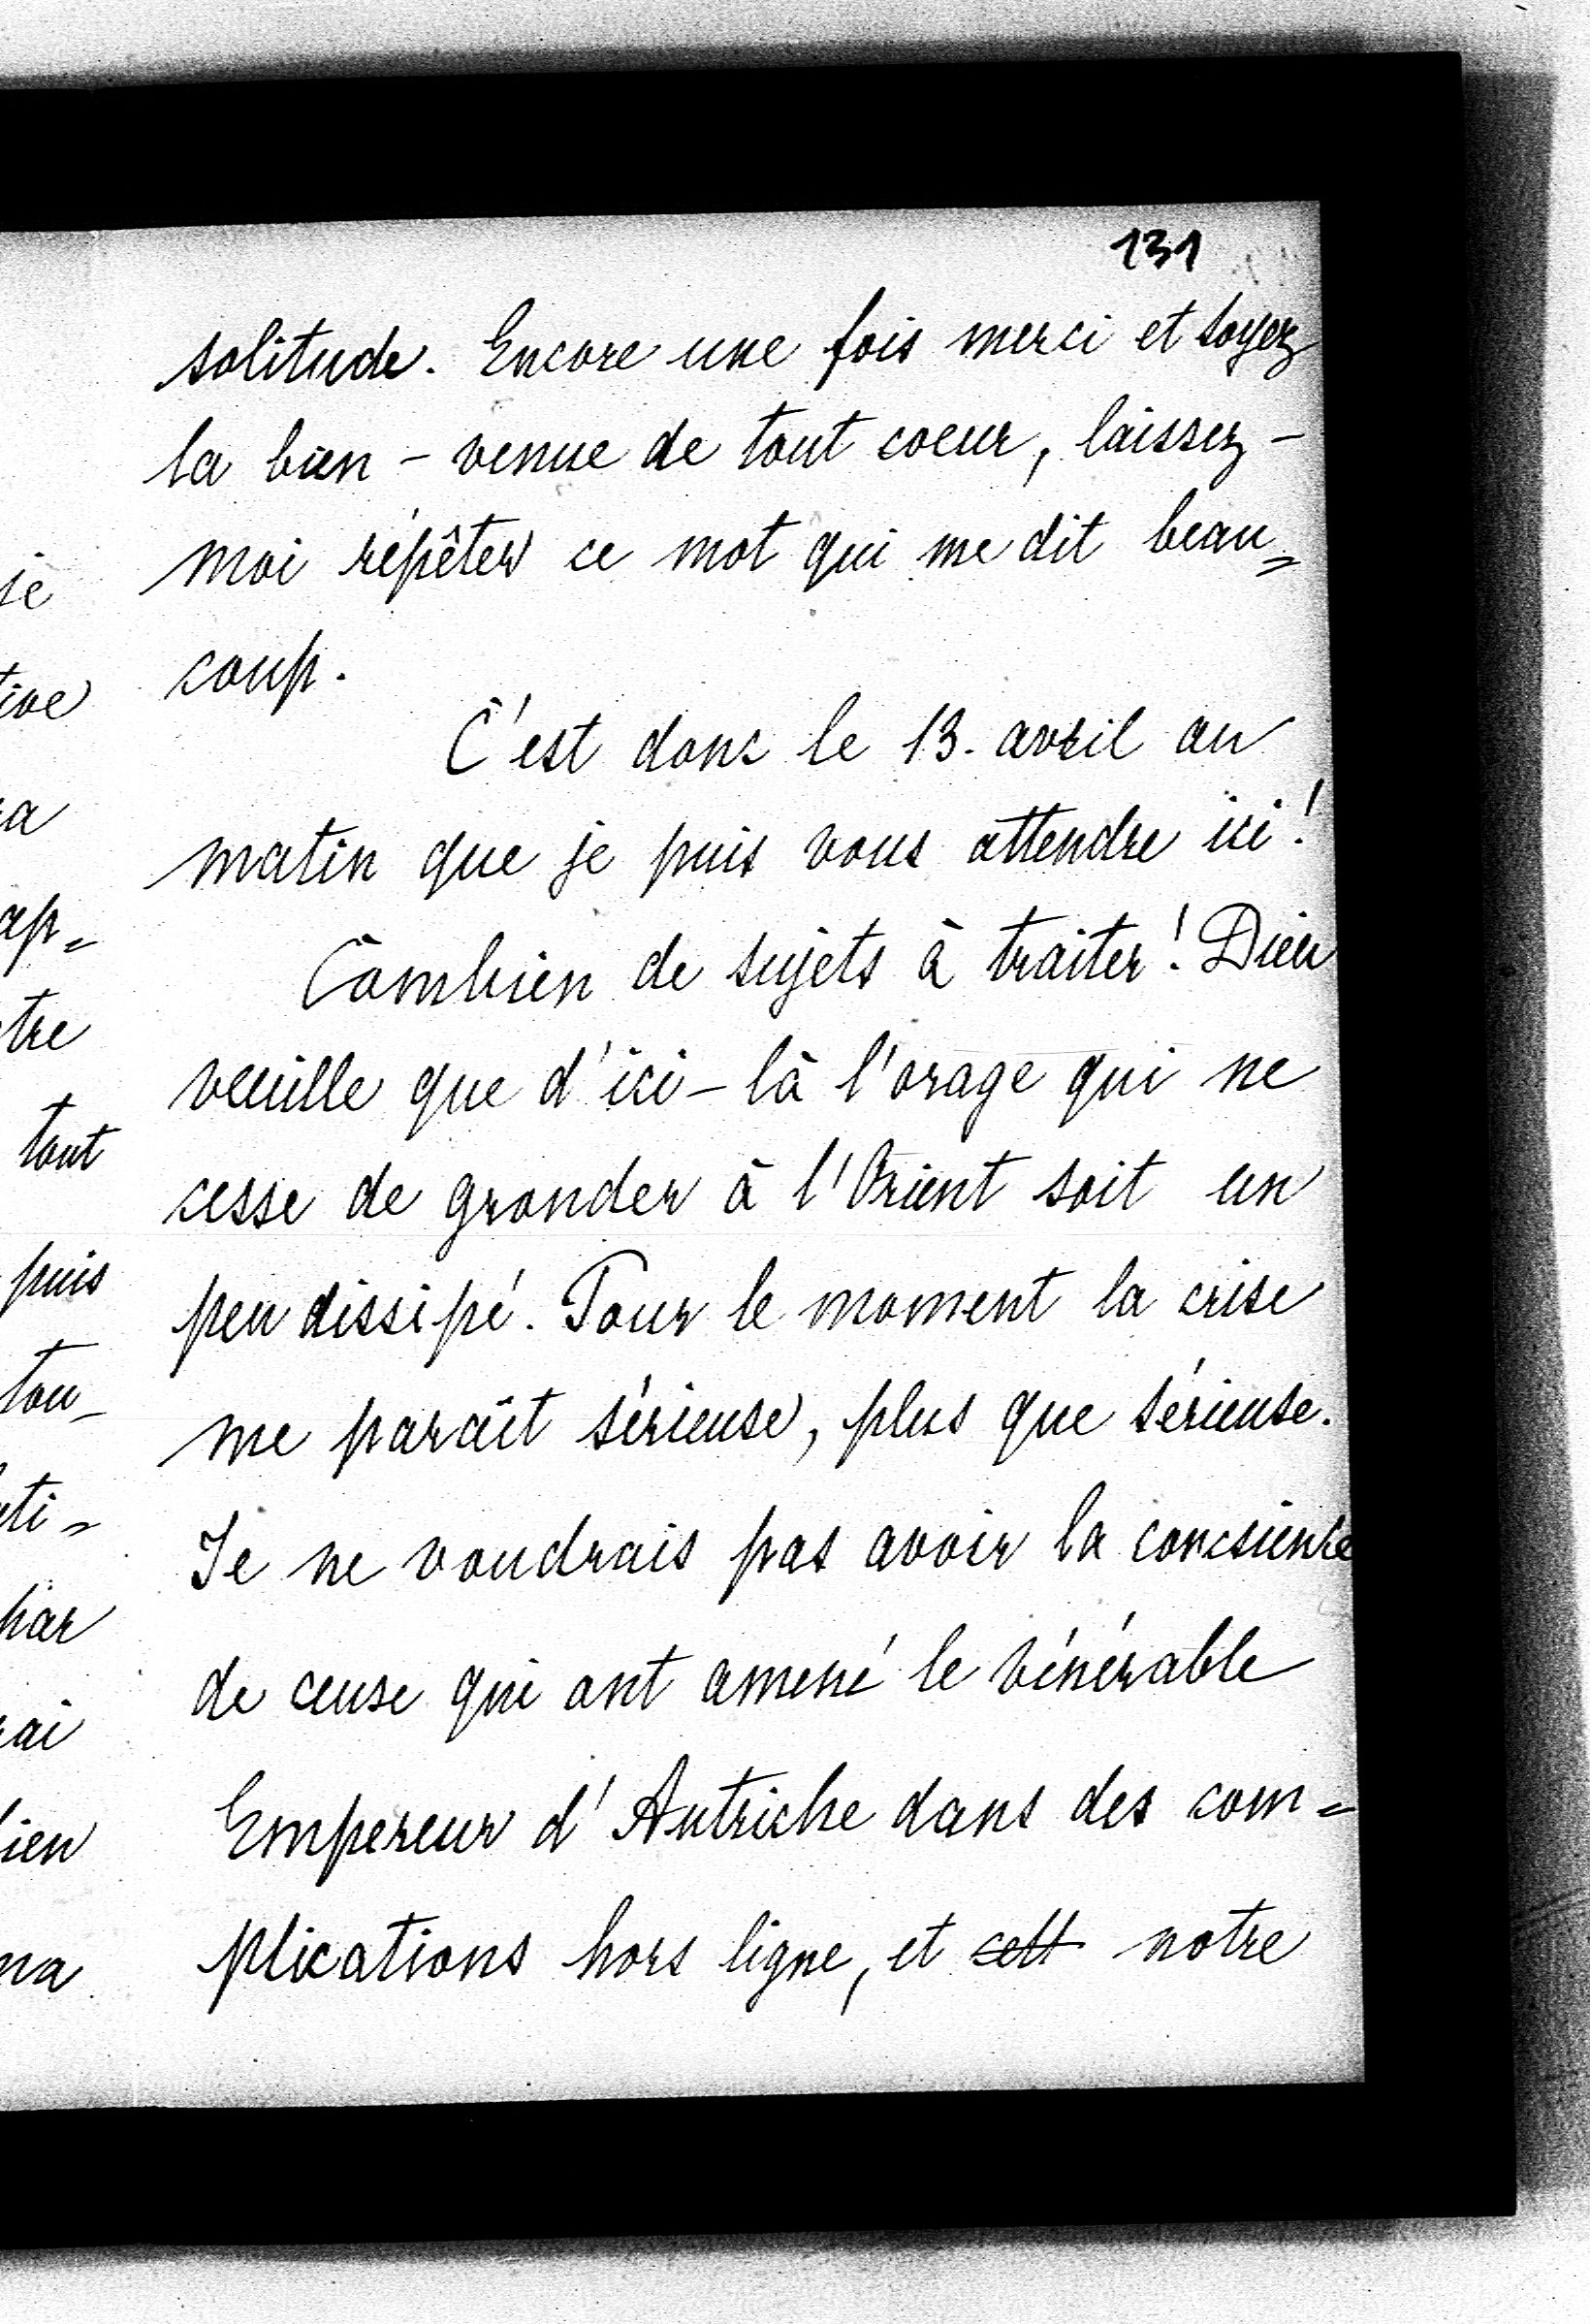 131
solitude. Encore une fois merci et soyez
la bien-venue de tout coeur, laissez-
moi répêter ce mot qui me dit beau=
coup.
C'est donc le 13. avril au
matin que je puis vous attendre ici!
Combien de sujets à traiter! Dieu
veuille que d'ici-là l'orage qui ne
cesse de gronder à l'Orient soit un
peu dissipé. Pour le moment la crise
me paraît sérieuse, plus que sérieuse.
Je ne voudrais pas avoir la concsience
de ceuse qui ont amené le vénérable
Empereur d'Autriche dans des com=
plications hors ligne, et cett notre
je
tive
ra
ap=
tre
tout
puis
tou-
ti=
har
rai
lien
ma